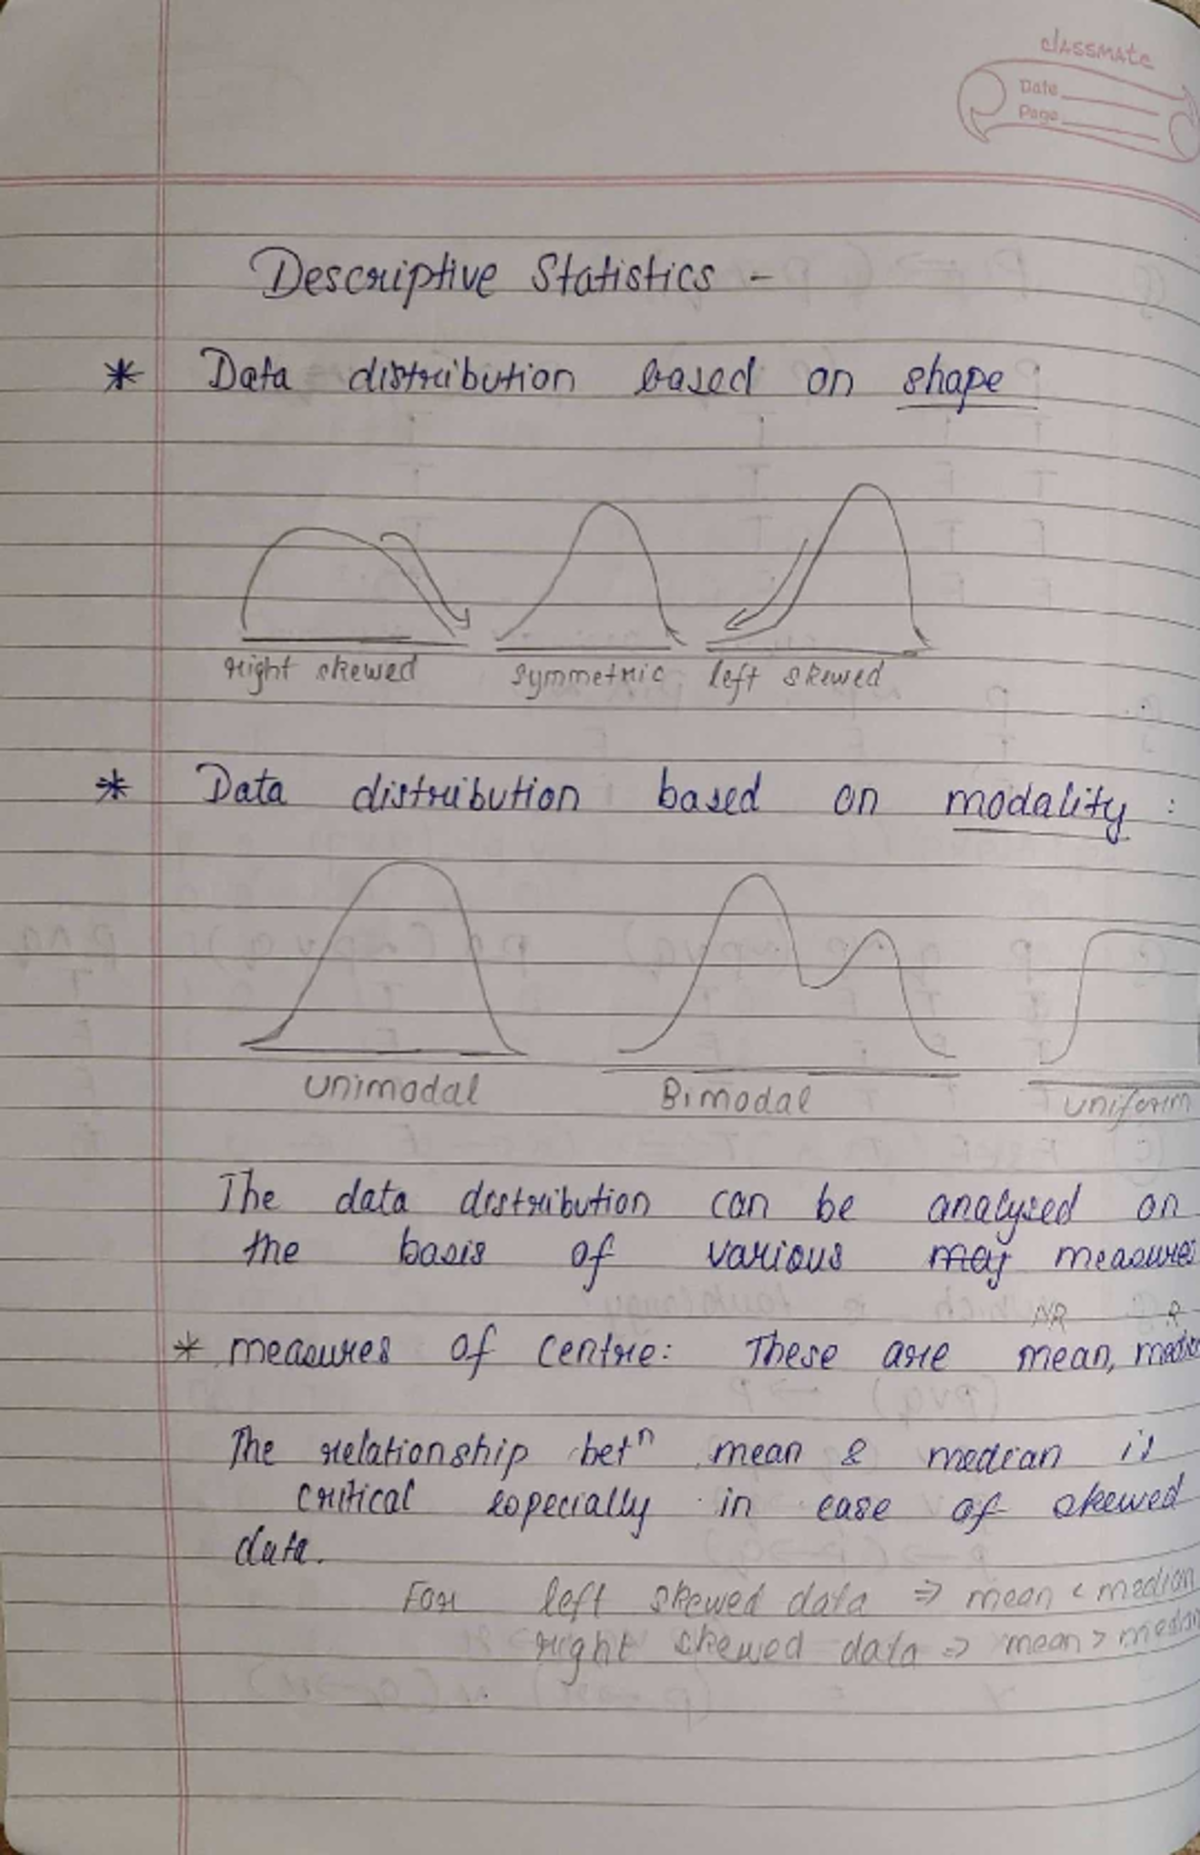 classmate
Date
Page
Descriptive Statistics -
* Data distribution based on shape
right skewed symmetric left skewed
* Data distribution based on modality :
unimodal Bimodal uniform
The data distribution can be analysed on
the basis of various may measures
NR R
* measures of centre: These are mean, median
The relationship betⁿ mean & median is
critical especially in case of skewed
data.
For left skewed data ⇒ mean < median
right skewed data ⇒ mean > median